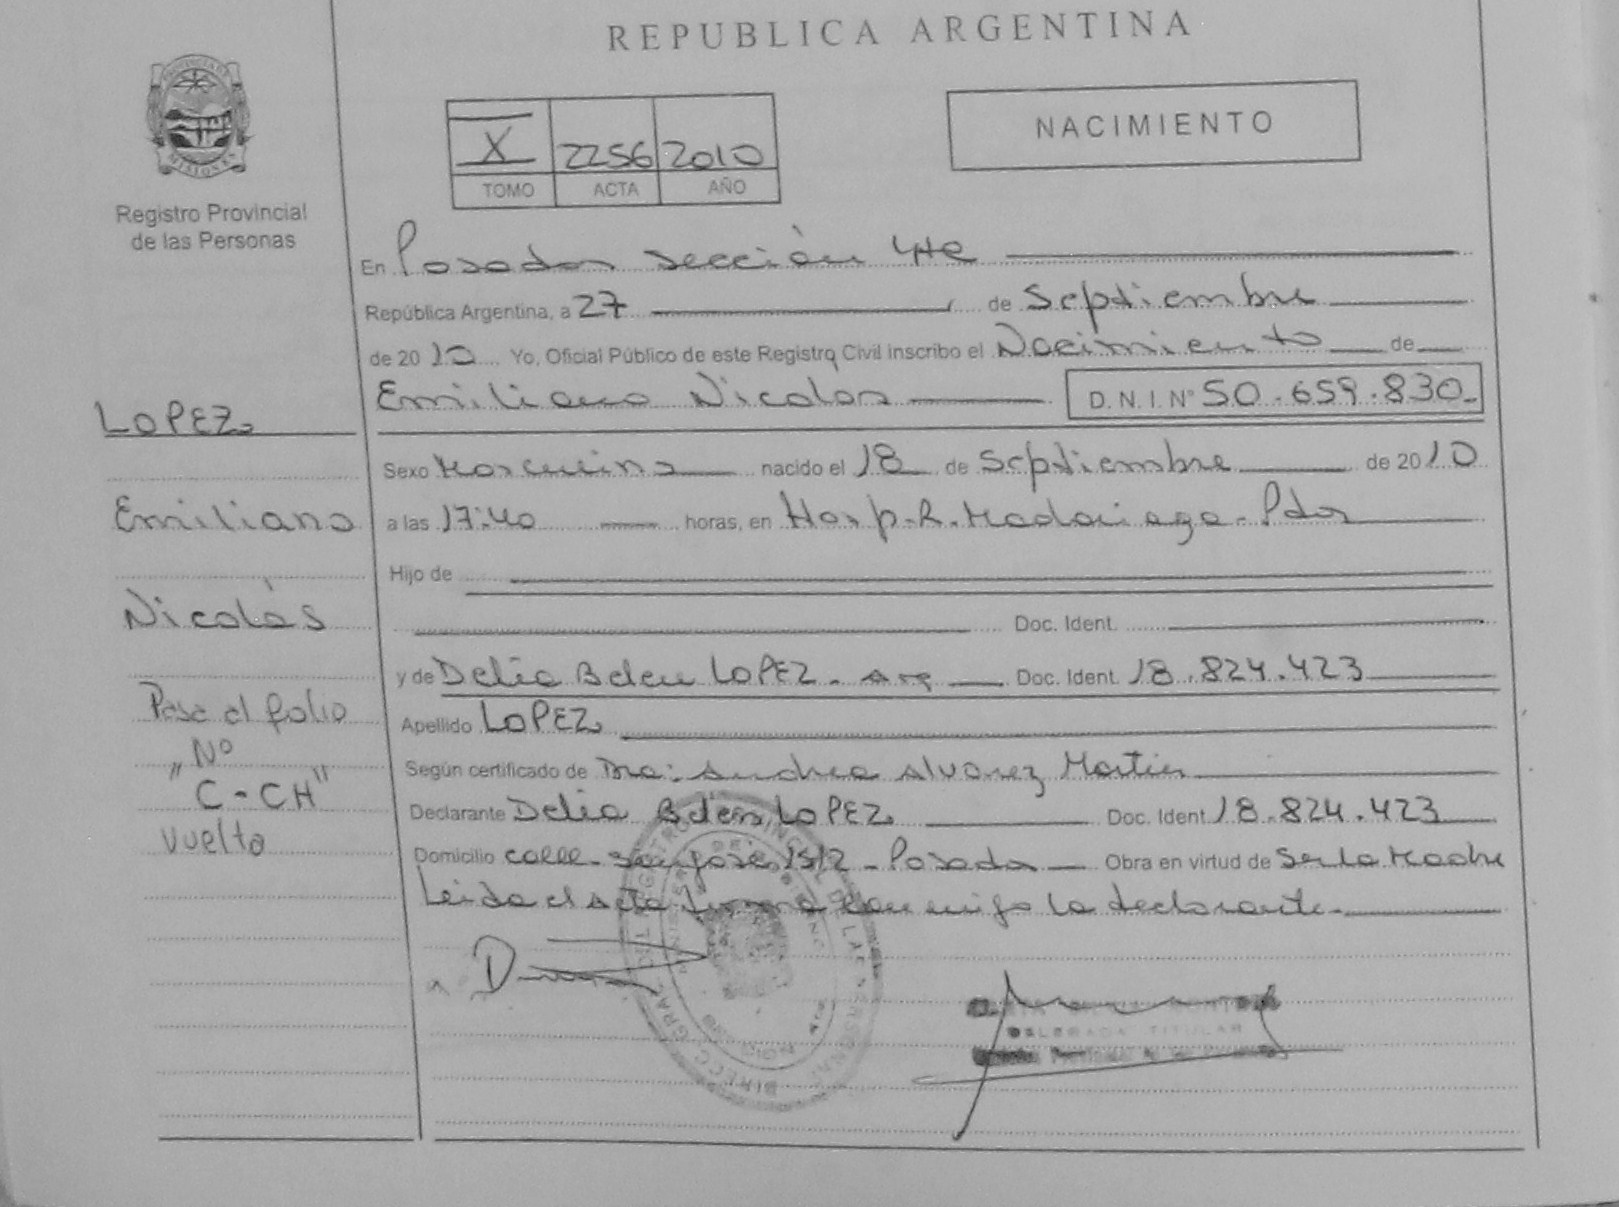 REPUBLICA ARGENTINA
PROVINCIA DE MISIONES
Registro Provincial
de las Personas
X 2256 2010
TOMO ACTA AÑO
NACIMIENTO
En Posadas Sección 4ta
República Argentina, a 27 de Septiembre
de 2010 Yo, Oficial Público de este Registro Civil inscribo el Nacimiento de
Emiliano Nicolas D.N.I. Nº 50.659.830
LOPEZ
Emiliano
Nicolás
Pase al folio
"Nº
C-CH"
vuelto
Sexo Masculino nacido el 18 de Septiembre de 2010
a las 17:40 horas, en Hosp. R. Madariaga - Pdas
Hijo de
Doc. Ident.
y de Delia Belen LOPEZ - arg Doc. Ident. 18.824.423
Apellido LOPEZ
Según certificado de Dra: Andrea Alvarez Martin
Declarante Delia Belen LOPEZ Doc. Ident 18.824.423
Domicilio calle San Jose 1512 - Posadas Obra en virtud de Ser la Madre
Leida el acta firma conmigo la declarante.
DELEGADA TITULAR